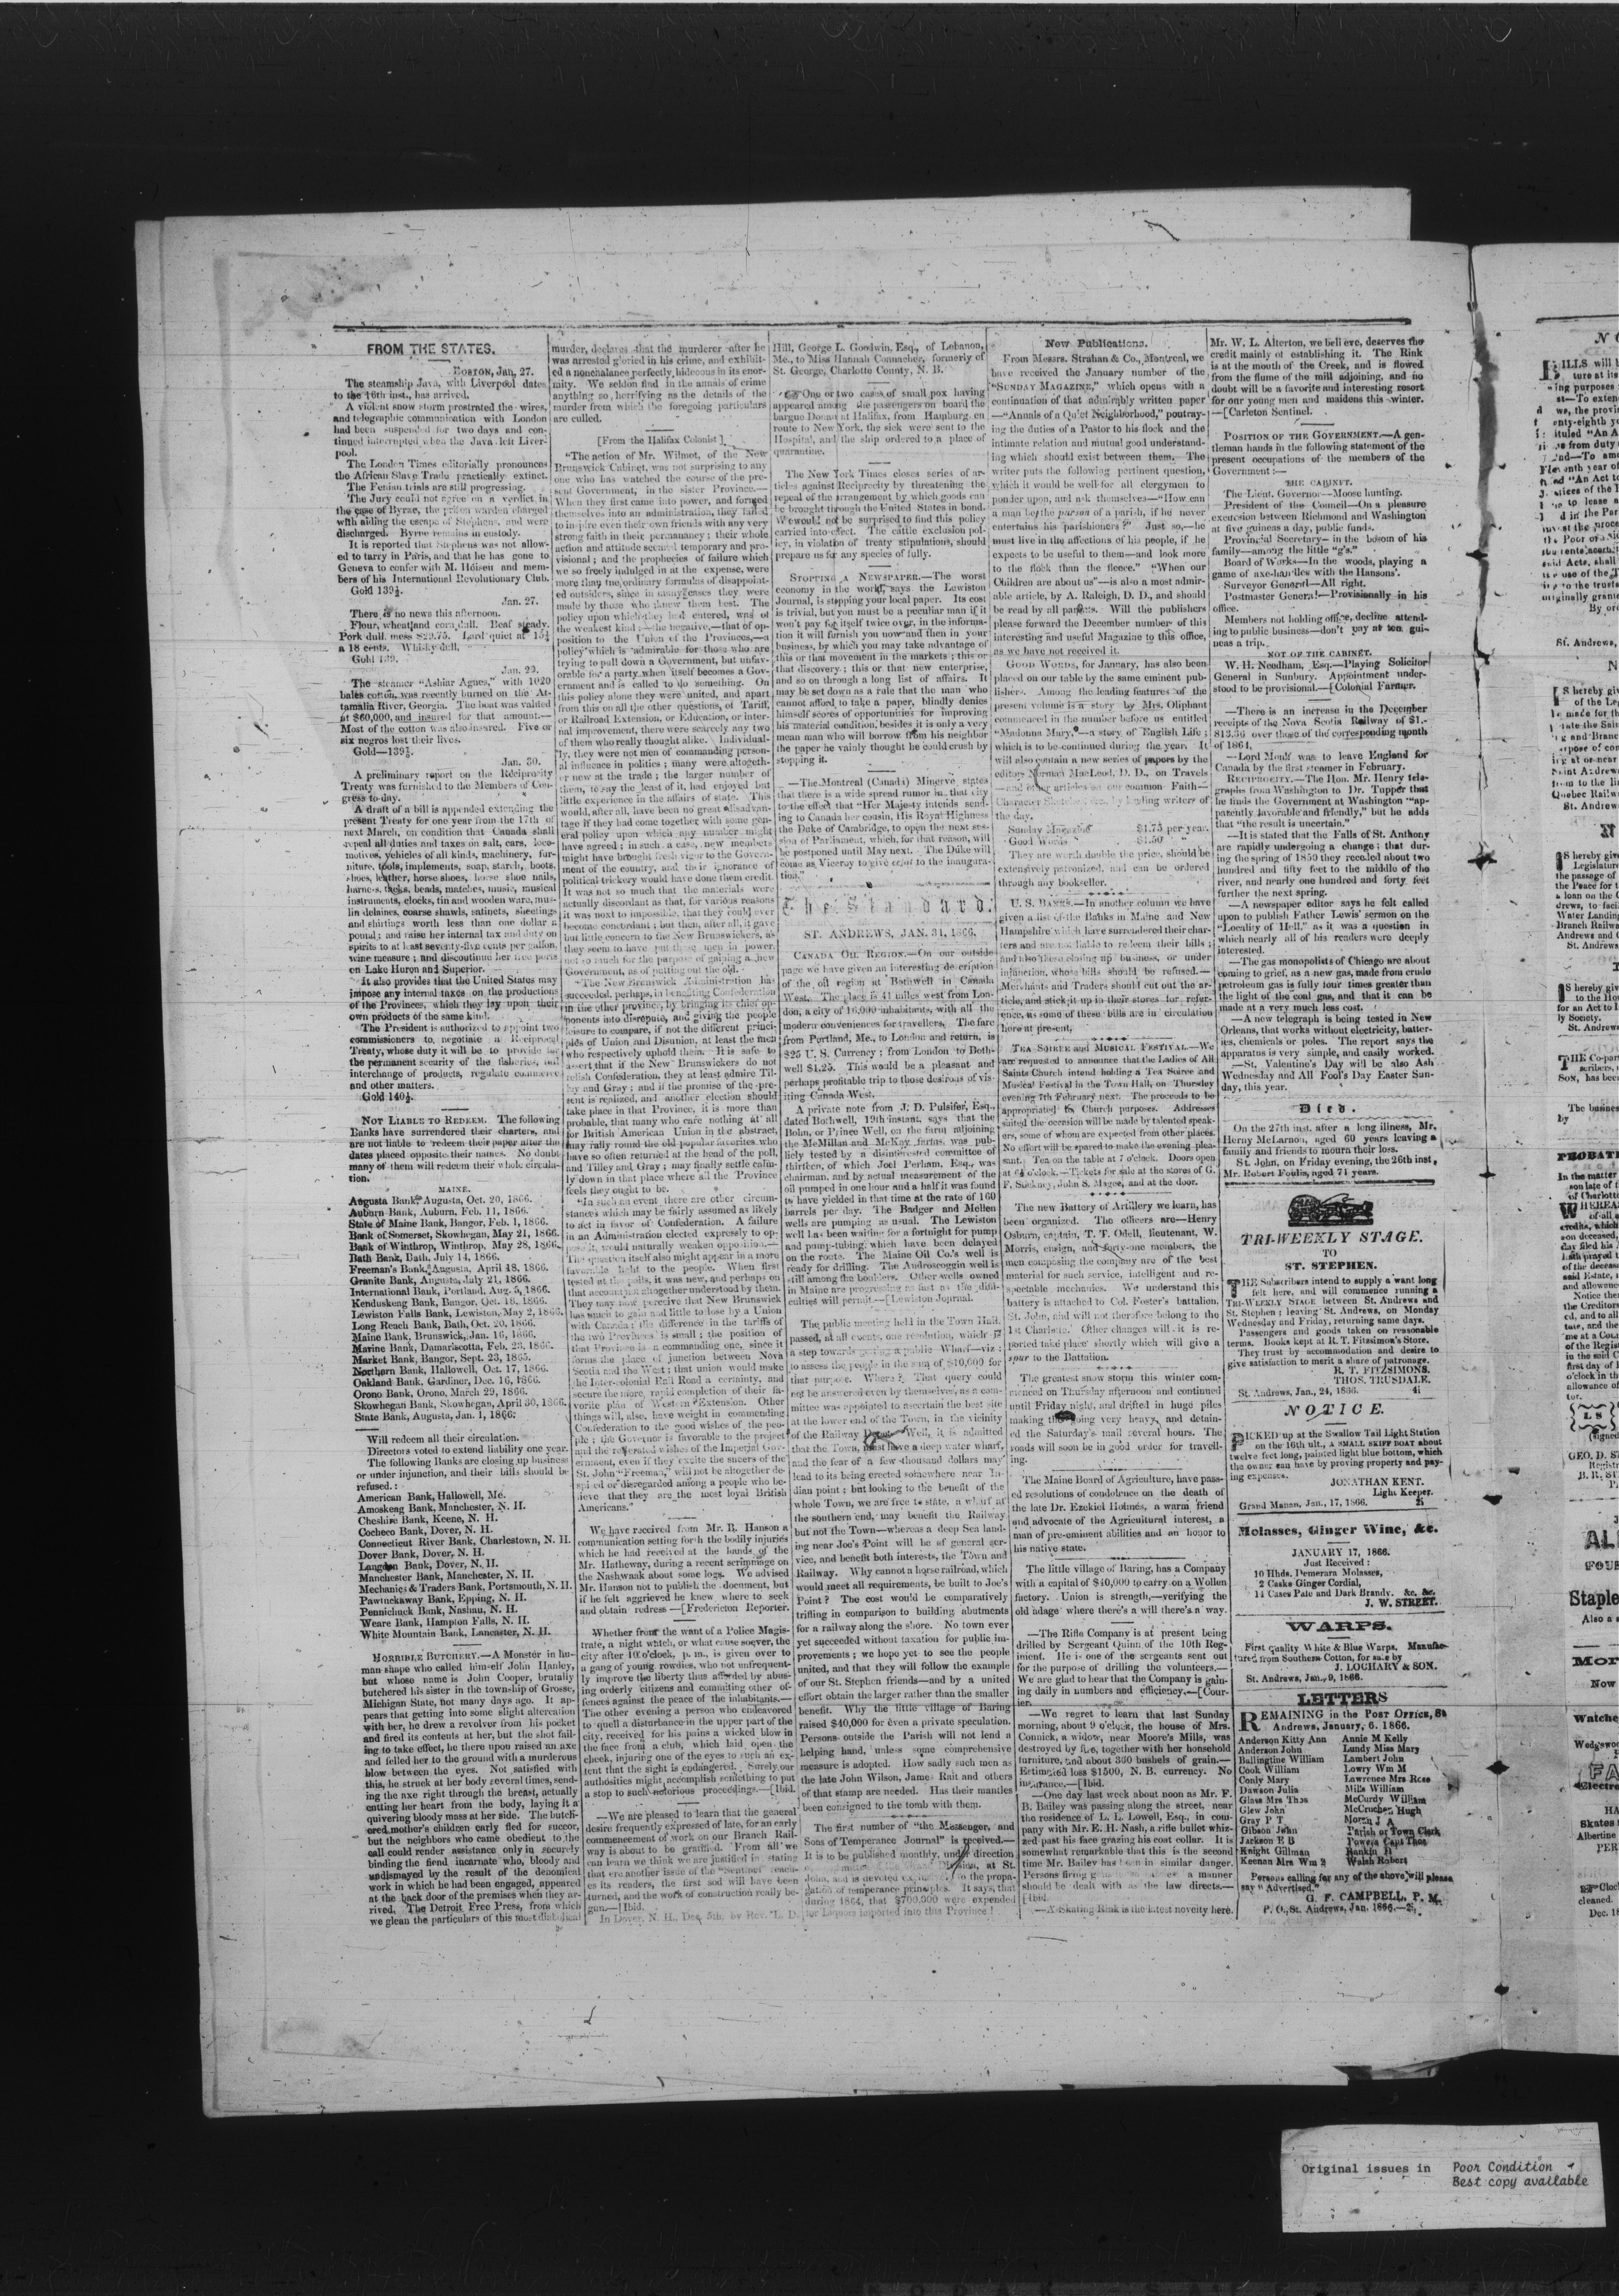 FROM THE STATES.
BOSTON, Jan. 27.
The steamship Java, with Liverpool dates
to the 16th inst., has arrived.
A violent snow storm prostrated the wires,
and telegraphic communication with London
had been suspended for two days and con-
tinued interrupted when the Java left Liver-
pool.
The London Times editorially pronounces
the African Slave Trade practically extinct.
The Fenian trials are still progressing.
The Jury could not agree on a verdict in
the case of Byrne, the prison warden charged
with aiding the escape of Stephens, and were
discharged. Byrne remains in custody.
It is reported that Stephens was not allow-
ed to tarry in Paris, and that he has gone to
Geneva to confer with M. and mem-
bers of his International Revolutionary Club.
Gold 139½.
Jan. 27.
There is no news this afternoon.
Flour, wheat and corn dull. Beaf steady.
Pork dull. mess $29.75. Lard quiet at 15½
a 18 cents. Whisky dull.
Gold 139.
Jan. 29.
The steamer "Ashiar Agnes," with 1020
bales cotton, was recently burned on the At-
tamalia River, Georgia. The boat was valued
at $60,000, and insured for that amount.—
Most of the cotton was also insured. Five or
six negros lost their lives.
Gold—139½.
Jan. 30.
A preliminary report on the Reciprocity
Treaty was furnished to the Members of Con-
gress to-day.
A draft of a bill is appended extending the
present Treaty for one year from the 17th of
next March, on condition that Canada shall
repeal all duties and taxes on salt, cars, loco-
motives, vehicles of all kinds, machinery, fur-
niture, tools, implements, soap, starch, boots,
shoes, leather, horse shoes, horse shoe nails,
harness, tacks, beads, matches, music, musical
instruments, clocks, tin and wooden ware, mus-
lin delaines, coarse shawls, satinets, sheetings
and shirtings worth less than one dollar a
pound; and raise her internal tax and duty on
spirits to at least seventy-five cents per gallon,
wine measure; and discontinue her free ports
on Lake Huron and Superior.
It also provides that the United States may
impose any internal taxes on the productions
of the Provinces, which they lay upon their
own products of the same kind.
The President is authorized to appoint two
commissioners to negotiate a Reciprocal
Treaty, whose duty it will be to provide for
the permanent security of the fisheries, and
interchange of products, regulate commerce
and other matters.
Gold 140½.
NOT LIABLE TO REDEEM. The following
Banks have surrendered their charters, and
are not liable to redeem their paper after the
dates placed opposite their names. No doubt
many of them will redeem their whole circula-
tion.
MAINE.
Augusta Bank, Augusta, Oct. 20, 1866.
Auburn Bank, Auburn, Feb. 11, 1866.
State of Maine Bank, Bangor, Feb. 1, 1866.
Bank of Somerset, Skowhegan, May 21, 1866.
Bank of Winthrop, Winthrop, May 28, 1866.
Bath Bank, Bath, July 14, 1866.
Freeman's Bank, Augusta, April 18, 1866.
Granite Bank, Augusta, July 21, 1866.
International Bank, Portland, Aug. 5, 1866.
Kenduskeag Bank, Bangor, Oct. 16, 1866.
Lewiston Falls Bank, Lewiston, May 2, 1866.
Long Reach Bank, Bath, Oct. 20, 1866.
Maine Bank, Brunswick, Jan. 16, 1866.
Marine Bank, Damariscotta, Feb. 23, 1866.
Market Bank, Bangor, Sept. 23, 1865.
Northern Bank, Hallowell, Oct. 17, 1866.
Oakland Bank, Gardiner, Dec. 16, 1866.
Orono Bank, Orono, March 29, 1866.
Skowhegan Bank, Skowhegan, April 30, 1866.
State Bank, Augusta, Jan. 1, 1866.
Will redeem all their circulation.
Directors voted to extend liability one year.
The following Banks are closing up business
or under injunction, and their bills should be
refused:
American Bank, Hallowell, Me.
Amoskeag Bank, Manchester, N. H.
Cheshire Bank, Keene, N. H.
Cocheco Bank, Dover, N. H.
Connecticut River Bank, Charlestown, N. H.
Dover Bank, Dover, N. H.
Langdon Bank, Dover, N. H.
Manchester Bank, Manchester, N. H.
Mechanics & Traders Bank, Portsmouth, N. H.
Pawtuckaway Bank, Epping, N. H.
Pennichuck Bank, Nashau, N. H.
Weare Bank, Hampton Falls, N. H.
White Mountain Bank, Lancaster, N. H.
HORRIBLE BUTCHERY.—A Monster in hu-
man shape who called himself John Hanley,
but whose name is John Cooper, brutally
butchered his sister in the township of Grosse,
Michigan State, not many days ago. It ap-
pears that getting into some slight altercation
with her, he drew a revolver from his pocket
and fired its contents at her, but the shot fail-
ing to take effect, he there upon raised an axe
and felled her to the ground with a murderous
blow between the eyes. Not satisfied with
this, he struck at her body several times, send-
ing the axe right through the breast, actually
cutting her heart from the body, laying it a
quivering bloody mass at her side. The butch-
ered mother's children early fled for succor,
but the neighbors who came obedient to the
call could render assistance only in securely
binding the fiend incarnate who, bloody and
undismayed by the result of the demoniacal
work in which he had been engaged, appeared
at the back door of the premises when they ar-
rived. The Detroit Free Press, from which
we glean the particulars of this most diabolical
murder, declares that the murderer after he
was arrested gloried in his crime, and exhibit-
ed a nonchalance perfectly hideous in its enor-
mity. We seldon find in the annals of crime
anything so horrifying as the details of the
murder from which the foregoing particulars
are culled.
[From the Halifax Colonist]
"The action of Mr. Wilmot, of the New
Brunswick Cabinet, was not surprising to any
one who has watched the course of the pre-
sent Government, in the sister Province.—
When they first came into power, and formed
themselves into an administration, they failed
to inspire even their own friends with any very
strong faith in their permanancy; their whole
action and attitude seemed temporary and pro-
visional; and the prophecies of failure which
we so freely indulged in at the expense, were
more than the ordinary formulas of disappoint-
ed outsiders, since in many cases they were
made by those who knew them best. The
policy upon which they had entered, was of
the weakest kind;—the negative,—that of op-
position to the Union of the Provinces,—a
policy which is admirable for those who are
trying to pull down a Government, but unfav-
orable for a party when itself becomes a Gov-
ernment and is called to do something. On
this policy alone they were united, and apart
from this on all the other questions, of Tariff,
or Railroad Extension, or Education, or inter-
nal improvement, there were scarcely any two
of them who really thought alike. Individual-
ly, they were not men of commanding person-
al influence in politics; many were altogeth-
er new at the trade; the larger number of
them, to say the least of it, had enjoyed but
little experience in the affairs of state. This
would, after all, have been no great disadvan-
tage if they had come together with some gen-
eral policy upon which any number might
have agreed; in such a case, new members
might have brought fresh vigor to the Govern-
ment of the country, and their ignorance of
political trickery would have done them credit.
It was not so much that the materials were
actually discordant as that, for various reasons
it was next to impossible, that they could ever
become concordant; but then, after all, it gave
but little concern to the New Brunswickers, as
they seem to have put these men in power,
not so much for the purpose of gaining a new
Government, as of putting out the old.
"The New Brunswick Administration has
succeeded, perhaps, in benefiting Confederation
in the other province, by bringing its chief op-
ponents into disrepute, and giving the people
leisure to compare, if not the different princi-
ples of Union and Disunion, at least the men
who respectively uphold them. It is safe to
assert that if the New Brunswickers do not
relish Confederation, they at least admire Til-
ley and Gray; and if the promise of the pre-
sent is realized, and another election should
take place in that Province, it is more than
probable, that many who care nothing at all
for British American Union in the abstract,
may rally round the old popular favorites who
have so often returned at the head of the poll,
and Tilley and Gray; may finally settle calm-
ly down in that place where all the Province
feels they ought to be.
"In such an event there are other circum-
stances which may be fairly assumed as likely
to act in favor of Confederation. A failure
in an Administration elected expressly to op-
pose it, would naturally weaken opposition.—
The question itself also might appear in a more
favorable light to the people. When first
tested at the polls, it was new, and perhaps on
that account not altogether understood by them.
They may now perceive that New Brunswick
has much to gain and little to lose by a Union
with Canada; the difference in the tariffs of
the two Provinces is small; the position of
that Province is a commanding one, since it
forms the place of junction between Nova
Scotia and the West; that union would make
the Inter-colonial Rail Road a certainty, and
secure the more rapid completion of their fa-
vorite plan of Western Extension. Other
things will, also, have weight in commending
Confederation to the good wishes of the peo-
ple; the Governor is favorable to the project
and the reiterated wishes of the Imperial Gov-
ernment, even if they excite the sneers of the
St. John "Freeman," will not be altogether de-
spised or disregarded among a people who be-
lieve that they are the most loyal British
Americans."
We have received from Mr. R. Hanson a
communication setting forth the bodily injuries
which he had received at the hands of the
Mr. Hatheway, during a recent scrimmage on
the Nashwaak about some logs. We advised
Mr. Hanson not to publish the document, but
if he felt aggrieved he knew where to seek
and obtain redress—[Fredericton Reporter.
Whether from the want of a Police Magis-
trate, a night watch, or what cause soever, the
city after 10 o'clock, p. m., is given over to
a gang of young rowdies, who not unfrequent-
ly improve the liberty thus afforded by abus-
ing orderly citizens and commiting other of-
fences against the peace of the inhabitants.—
The other evening a person who endeavored
to quell a disturbance in the upper part of the
city, received for his pains a wicked blow in
the face from a club, which laid open the
cheek, injuring one of the eyes to such an ex-
tent that the sight is endangered. Surely our
authosities might accomplish something to put
a stop to such notorious proceedings.—[Ibid.
—We are pleased to learn that the general
desire frequently expressed of late, for an early
commencement of work on our Branch Rail-
way is about to be gratified. From all we
can learn we think we are justified in stating
that ere another issue of the "Sentinel" reach-
es its readers, the first sod will have been
turned, and the work of construction really be-
gun.—[Ibid.
In Dover, N. H., Dec. 5th, by Rev. L. D.
Hill, George L. Goodwin, Esq., of Lebanon,
Me., to Miss Hannah Connacher, formerly of
St. George, Charlotte County, N. B.
One or two cases of small pox having
appeared among the passengers on board the
barque Donau at Halifax, from Hamburg en
route to New York, the sick were sent to the
Hospital, and the ship ordered to a place of
quarantine.
The New York Times closes series of ar-
ticles against Reciprocity by threatening the
repeal of the arrangement by which goods can
be brought through the United States in bond.
We would not be surprised to find this policy
carried into effect. The cattle exclusion pol-
icy, in violation of treaty stipulations, should
prepare us for any species of fully.
STOPPING A NEWSPAPER.—The worst
economy in the world, says the Lewiston
Journal, is stopping your local paper. Its cost
is trivial, but you must be a peculiar man if it
won't pay for itself twice over, in the informa-
tion it will furnish you now and then in your
business, by which you may take advantage of
this or that movement in the markets; this or
that discovery; this or that new enterprise,
and so on through a long list of affairs. It
may be set down as a rule that the man who
cannot afford to take a paper, blindly denies
himself scores of opportunities for improving
his material condition, besides it is only a very
mean man who will borrow from his neighbor
the paper he vainly thought he could crush by
stopping it.
—The Montreal (Canada) Minerve states
that there is a wide spread rumor in that city
to the effect that "Her Majesty intends send-
ing to Canada her cousin, His Royal Highness
the Duke of Cambridge, to open the next ses-
sion of Parliament, which, for that reason, will
be postponed until May next. The Duke will
come as Viceroy to give eclat to the inaugura-
tion."
The Standard.
ST. ANDREWS, JAN. 31, 1866.
CANADA OIL REGION.—On our outside
page we have given an interesting description
of the oil region at Bothwell in Canada
West. The place is 41 miles west from Lon-
don, a city of 16,000 inhabitants, with all the
modern conveniences for travellers. The fare
from Portland, Me., to London and return, is
$25 U. S. Currency; from London to Both-
well $1.25. This would be a pleasant and
perhaps profitable trip to those desirous of vis-
iting Canada West.
A private note from J. D. Pulsifer, Esq.,
dated Bothwell, 19th instant, says that the
Bohn, or Prince Well, on the farm adjoining
the McMillan and McKay farms, was pub-
licly tested by a disinterested committee of
thirteen, of which Joel Perham, Esq., was
chairman, and by actual measurement of the
oil pumped in one hour and a half it was found
to have yielded in that time at the rate of 160
barrels per day. The Badger and Mellen
wells are pumping as usual. The Lewiston
well has been waiting for a fortnight for pump
and pump-tubing, which have been delayed
on the route. The Maine Oil Co.'s well is
ready for drilling. The Androscoggin well is
still among the boulders. Other wells owned
in Maine are progressing as fast as the diffi-
culties will permit.—[Lewiston Journal.
The public meeting held in the Town Hall,
passed, at all events, one resolution, which is
a step towards getting a public Wharf—viz:
to assess the people in the sum of $10,000 for
that purpose. Where? That query could
not be answered even by themselves, as a com-
mittee was appointed to ascertain the best site
at the lower end of the Town, in the vicinity
of the Railway Depot. Well, it is admitted
that the Town, must have a deep water wharf,
and the fear of a few thousand dollars may
lead to its being erected somewhere near In-
dian point; but looking to the benefit of the
whole Town, we are free to state, a wharf at
the southern end, may benefit the Railway
but not the Town—whereas a deep Sea land-
ing near Joe's Point will be of general ser-
vice, and benefit both interests, the Town and
Railway. Why cannot a horse railroad, which
would meet all requirements, be built to Joe's
Point? The cost would be comparatively
trifling in comparison to building abutments
for a railway along the shore. No town ever
yet succeeded without taxation for public im-
provements; we hope yet to see the people
united, and that they will follow the example
of our St. Stephen friends—and by a united
effort obtain the larger rather than the smaller
benefit. Why the little village of Baring
raised $40,000 for even a private speculation.
Persons outside the Parish will not lend a
helping hand, unless some comprehensive
measure is adopted. How sadly such men as
the late John Wilson, James Rait and others
of that stamp are needed. Has their mantles
been consigned to the tomb with them.
The first number of "the Messenger, and
Sons of Temperance Journal" is received.—
It is to be published monthly, under direction
Division, at St.
John, and is devoted to the propa-
gation of temperance principles. It says, that
during 1864, that $700,000 were expended
for Liquors imported into this Province!
New Publications.
From Messrs. Strahan & Co., Montreal, we
have received the January number of the
"SUNDAY MAGAZINE," which opens with a
continuation of that admirably written paper
—"Annals of a Quiet Neighborhood," poutray-
ing the duties of a Pastor to his flock and the
intimate relation and mutual good understand-
ing which should exist between them. The
writer puts the following pertinent question,
which it would be well for all clergymen to
ponder upon, and ask themselves—"How can
a man be the parson of a parish, if he never
entertains his parishioners?" Just so,—he
must live in the affections of his people, if he
expects to be useful to them—and look more
to the flock than the fleece." "When our
Children are about us"—is also a most admir-
able article, by A. Raleigh, D. D., and should
be read by all parents. Will the publishers
please forward the December number of this
interesting and useful Magazine to this office,
as we have not received it.
GOOD WORDS, for January, has also been
placed on our table by the same eminent pub-
lishers. Among the leading features of the
present volume is a story by Mrs. Oliphant
commenced in the number before us entitled
"Madonna Mary,"—a story of English Life;
which is to be continued during the year. It
will also contain a new series of papers by the
editor Norman MacLeod, D. D., on Travels
—and other articles on our common Faith—
Character Sketches &c., by leading writers of
the day.
Sunday Magazine $1.75 per year.
Good Words $1.50 "
They are worth double the price, should be
extensively patronized, and can be ordered
through any bookseller.
U. S. BANKS.—In another column we have
given a list of the Banks in Maine and New
Hampshire which have surrendered their char-
ters and are not liable to redeem their bills;
and also those closing up business, or under
injunction, whose bills should be refused.—
Merchants and Traders should cut out the ar-
ticle, and stick it up in their stores for refer-
ence, as some of these bills are in circulation
here at present.
TEA SOIREE and MUSICAL FESTIVAL.—We
are requested to announce that the Ladies of All
Saints Church intend holding a Tea Soiree and
Musical Festival in the Town Hall, on Thursday
evening 7th February next. The proceeds to be
appropriated to Church purposes. Addresses
suited the occasion will be made by talented speak-
ers, some of whom are expected from other places.
No effort will be spared to make the evening plea-
sant. Tea on the table at 7 o'clock. Doors open
at 6½ o'clock.—Tickets for sale at the stores of G.
F. Stickney, John S. Magee, and at the door.
The new Battery of Artillery we learn, has
been organized. The officers are—Henry
Osburn, captain, T. T. Odell, lieutenant, W.
Morris, ensign, and forty-one members, the
men composing the company are of the best
material for such service, intelligent and re-
spectable mechanics. We understand this
battery is attached to Col. Foster's battalion,
St. John, and will not therefore belong to the
1st Charlotte. Other changes will it is re-
ported take place shortly which will give a
spur to the Battalion.
The greatest snow storm this winter com-
menced on Thursday afternoon and continued
until Friday night, and drifted in huge piles
making the going very heavy, and detain-
ed the Saturday's mail several hours. The
roads will soon be in good order for travell-
ing.
The Maine Board of Agriculture, have pass-
ed resolutions of condolence on the death of
the late Dr. Ezekiel Holmes, a warm friend
and advocate of the Agricultural interest, a
man of pre-eminent abilities and an honor to
his native state.
The little village of Baring, has a Company
with a capital of $40,000 to carry on a Wollen
factory. Union is strength,—verifying the
old adage where there's a will there's a way.
—The Rifle Company is at present being
drilled by Sergeant Quinn of the 10th Reg-
iment. He is one of the sergeants sent out
for the purpose of drilling the volunteers.—
We are glad to hear that the Company is gain-
ing daily in numbers and efficiency.—[Cour-
ier.
—We regret to learn that last Sunday
morning, about 9 o'clock, the house of Mrs.
Connick, a widow, near Moore's Mills, was
destroyed by fire, together with her household
furniture, and about 300 bushels of grain.—
Estimated loss $1500, N. B. currency. No
insurance.—[Ibid.
—One day last week about noon as Mr. F.
B. Bailey was passing along the street, near
the residence of L. L. Lowell, Esq., in com-
pany with Mr. E. H. Nash, a rifle bullet whiz-
zed past his face grazing his coat collar. It is
somewhat remarkable that this is the second
time Mr. Bailey has been in similar danger.
Persons firing a manner
should be dealt with as the law directs.—
[Ibid.
—A Skating Rink is the latest novelty here.
Mr. W. L. Alterton, we believe, deserves the
credit mainly of establishing it. The Rink
is at the mouth of the Creek, and is flowed
from the flume of the mill adjoining, and no
doubt will be a favorite and interesting resort
for our young men and maidens this winter.
—[Carleton Sentinel.
POSITION OF THE GOVERNMENT.—A gen-
tleman hands in the following statement of the
present occupations of the members of the
Government:—
THE CABINET.
The Lieut. Governor—Moose hunting.
President of the Council—On a pleasure
excursion between Richmond and Washington
at five guineas a day, public funds.
Provincial Secretary—in the bosom of his
family—among the little "g's."
Board of Works—In the woods, playing a
game of axe-handles with the Hansons'.
Surveyor General—All right.
Postmaster General—Provisionally in his
office.
Members not holding office, decline attend-
ing to public business—don't pay at ten gui-
neas a trip.
NOT OF THE CABINET.
W. H. Needham, Esq.—Playing Solicitor
General in Sunbury. Appointment under-
stood to be provisional.—[Colonial Farmer.
—There is an increase in the December
receipts of the Nova Scotia Railway of $1,-
813.36 over those of the corresponding month
of 1864.
—Lord Monk was to leave England for
Canada by the first steamer in February.
RECIPROCITY.—The Hon. Mr. Henry tele-
graphs from Washington to Dr. Tupper that
he finds the Government at Washington "ap-
parently favorable and friendly," but he adds
that "the result is uncertain."
—It is stated that the Falls of St. Anthony
are rapidly undergoing a change; that dur-
ing the spring of 1859 they receded about two
hundred and fifty feet to the middle of the
river, and nearly one hundred and forty feet
further the next spring.
—A newspaper editor says he felt called
upon to publish Father Lewis' sermon on the
"Locality of Hell," as it was a question in
which nearly all of his readers were deeply
interested.
—The gas monopolists of Chicago are about
coming to grief, as a new gas, made from crude
petroleum gas is fully four times greater than
the light of the coal gas, and that it can be
made at a very much less cost.
—A new telegraph is being tested in New
Orleans, that works without electricity, batter-
ies, chemicals or poles. The report says the
apparatus is very simple, and easily worked.
—St. Valentine's Day will be also Ash
Wednesday and All Fool's Day Easter Sun-
day, this year.
Died.
On the 27th inst. after a long illness, Mr.
Herny McLarnon, aged 60 years leaving a
family and friends to mourn their loss.
St. John, on Friday evening, the 26th inst,
Mr. Robert Foulis, aged 71 years.
TRI-WEEKLY STAGE.
TO
ST. STEPHEN.
THE Subscribers intend to supply a want long
felt here, and will commence running a
TRI-WEEKLY STAGE between St. Andrews and
St. Stephen; leaving St. Andrews, on Monday
Wednesday and Friday, returning same days.
Passengers and goods taken on reasonable
terms. Books kept at R. T. Fitzsimon's Store.
They trust by accommodation and desire to
give satisfaction to merit a share of patronage.
R. T. FITZSIMONS.
THOS. TRUSDALE.
St. Andrews, Jan., 24, 1866. 4i
NOTICE.
PICKED up at the Swallow Tail Light Station
on the 16th ult., a SMALL SKIFF BOAT about
twelve feet long, painted light blue bottom, which
the owner can have by proving property and pay-
ing expenses.
JONATHAN KENT.
Light Keeper.
Grand Manan, Jan., 17, 1866. 2i
Molasses, Ginger Wine, &c.
JANUARY 17, 1866.
Just Received:
10 Hhds. Demerara Molasses,
2 Casks Ginger Cordial,
14 Cases Pale and Dark Brandy. &c. &c.
J. W. STREET.
WARPS.
First quality White & Blue Warps, Manufac-
tured from Southern Cotton, for sale by
J. LOCHARY & SON.
St. Andrews, Jan., 9, 1866.
LETTERS
REMAINING in the POST OFFICE, St
Andrews, January, 6. 1866.
Anderson Kitty Ann Annie M Kelly
Anderson John Lundy Miss Mary
Ballingtine William Lambert John
Cook William Lowry Wm M
Conly Mary Lawrence Mrs Rose
Dawson Julia Mills William
Glass Mrs Thos McCurdy William
Glew John McCrucher Hugh
Gray P T Morin J A
Gibson John Parish or Town Clerk
Jackson E B Powers Capt Thos
Knight Gillman Rankin H
Keenan Mrs Wm 2 Walsh Robert
Persons calling for any of the above will please
say "Advertised."
G. F. CAMPBELL, P. M.
P. O., St. Andrews, Jan. 1866.—2i
Original issues in Poor Condition
Best copy available